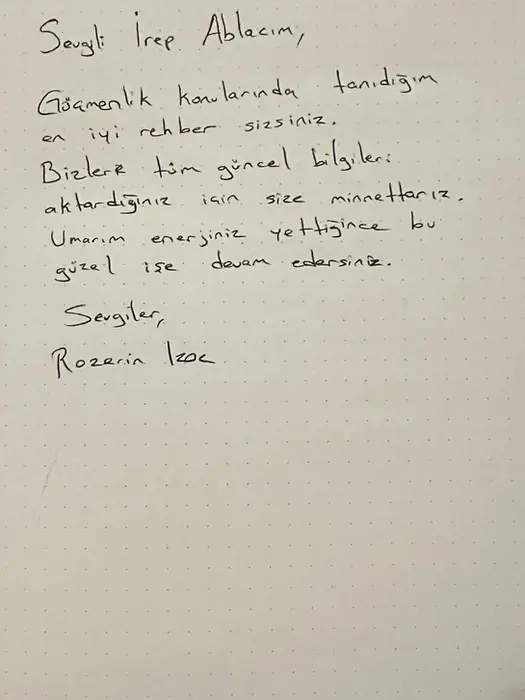 Sevgili İrep Ablacım,
Göçmenlik konularında tanıdığım
en iyi rehber sizsiniz.
Bizlere tüm güncel bilgileri
aktardığınız için size minnettarız.
Umarım enerjiniz yettiğince bu
güzel işe devam edersiniz.
Sevgiler,
Rozerin